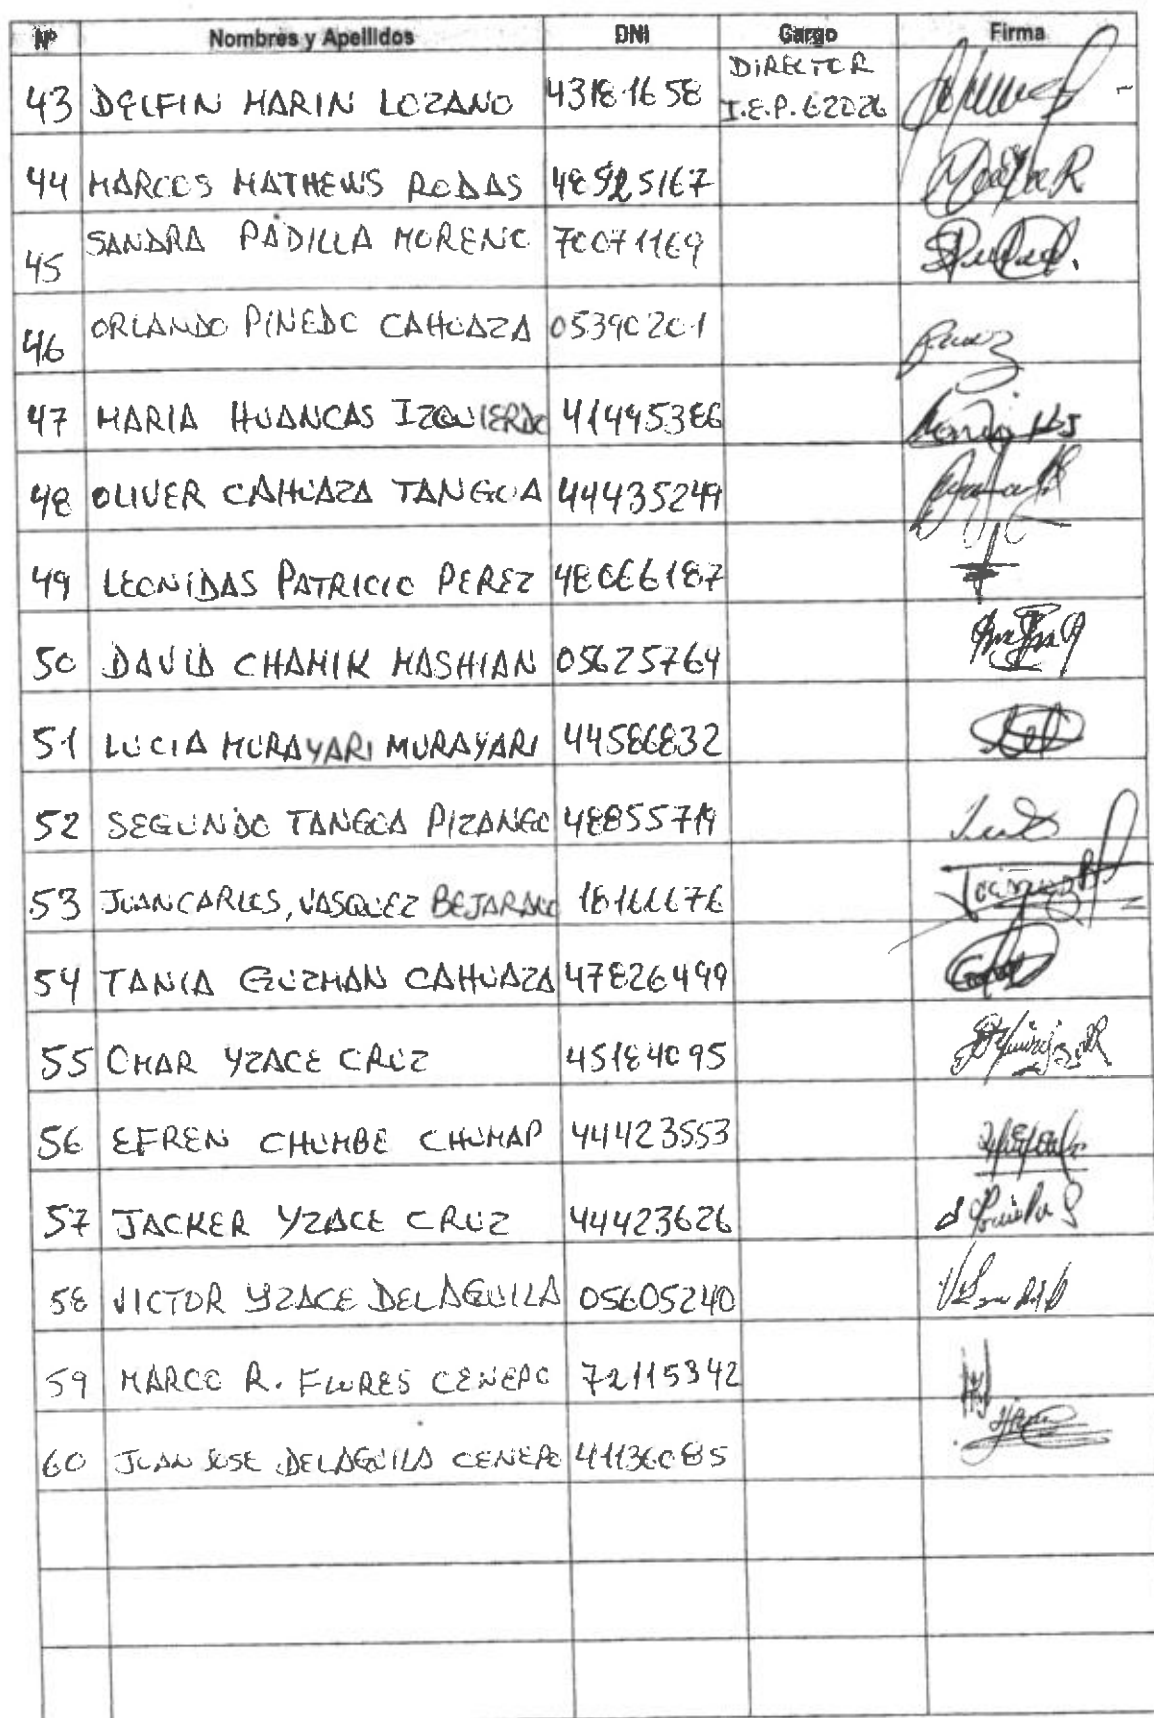 Nº Nombres y Apellidos DNI Cargo Firma
43 DELFIN MARIN LOZANO 43181658 DIRECTOR
I.E.P. 62026
44 MARCOS MATHEWS RODAS 48525167
45 SANDRA PADILLA MORENO 70071169
46 ORLANDO PINEDO CAHUAZA 05390201
47 MARIA HUANCAS IZQUIERDO 41495386
48 OLIVER CAHUAZA TANGOA 44435249
49 LEONIDAS PATRICIO PEREZ 48066187
50 DAVID CHAMIK MASHIAN 05625764
51 LUCIA MURAYARI MURAYARI 44586832
52 SEGUNDO TANGOA PIZANGO 48855719
53 JUAN CARLOS, VASQUEZ BEJARANO 18166676
54 TANIA GUZMAN CAHUAZA 47826499
55 OMAR YZACE CRUZ 45184095
56 EFREN CHUMBE CHUMAP 44423553
57 JACKER YZACE CRUZ 44423626
58 VICTOR YZACE DEL AGUILA 05605240
59 MARCO R. FLORES CENEPO 72115342
60 JUAN JOSE DEL AGUILA CENEPO 41136085